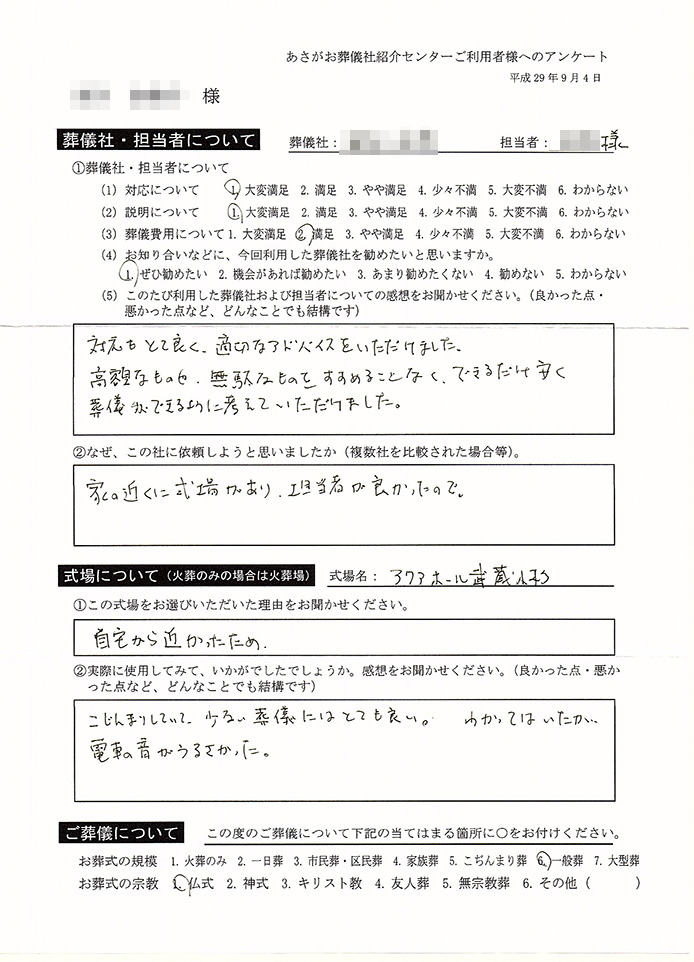 あさがお葬儀社紹介センターご利用者様へのアンケート
平成29年9月4日
様
葬儀社・担当者について 葬儀社： 担当者： 様
①葬儀社・担当者について
(1) 対応について 1. 大変満足 2. 満足 3. やや満足 4. 少々不満 5. 大変不満 6. わからない
(2) 説明について 1. 大変満足 2. 満足 3. やや満足 4. 少々不満 5. 大変不満 6. わからない
(3) 葬儀費用について 1. 大変満足 2. 満足 3. やや満足 4. 少々不満 5. 大変不満 6. わからない
(4) お知り合いなどに、今回利用した葬儀社を勧めたいと思いますか。
1. ぜひ勧めたい 2. 機会があれば勧めたい 3. あまり勧めたくない 4. 勧めない 5. わからない
(5) このたび利用した葬儀社および担当者についての感想をお聞かせください。（良かった点・
悪かった点など、どんなことでも結構です）
対応もとて良く、適切なアドバイスをいただけました。
高額なものや、無駄なものをすすめることなく、できるだけ安く
葬儀ができるように考えていただけました。
②なぜ、この社に依頼しようと思いましたか（複数社を比較された場合等）。
家の近くに式場があり、担当者が良かったので。
式場について（火葬のみの場合は火葬場） 式場名： アクアホール武蔵小杉
①この式場をお選びいただいた理由をお聞かせください。
自宅から近かったため。
②実際に使用してみて、いかがでしたでしょうか。感想をお聞かせください。（良かった点・悪か
った点など、どんなことでも結構です）
こじんまりしていて、少ない葬儀にはとても良い。 わかってはいたが、
電車の音がうるさかった。
ご葬儀について この度のご葬儀について下記の当てはまる箇所に○をお付けください。
お葬式の規模 1. 火葬のみ 2. 一日葬 3. 市民葬・区民葬 4. 家族葬 5. こぢんまり葬 6. 一般葬 7. 大型葬
お葬式の宗教 1. 仏式 2. 神式 3. キリスト教 4. 友人葬 5. 無宗教葬 6. その他（ ）